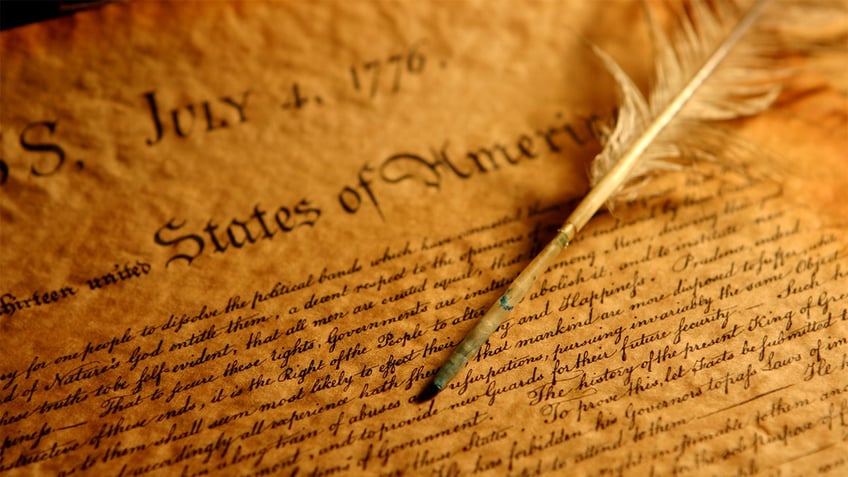 S. JULY 4, 1776.
thirteen united States of America
ry for one people to dissolve the political bands which have connected them
d of Nature's God entitle them, a decent respect to the opinions of
hese truths to be self-evident, that all men are created equal, that
piness.— That to secure these rights, Governments are among Men, deriving their
structive of these ends, it is the Right of the People to alter abolish it, and to institute new
as to them shall seem most likely to effect their and Happiness. Prudence indeed
accordingly all experience hath that mankind are more disposed to suffer
a long train of abuses usurpations, pursuing invariably the same Object
ment, and to provide new Guards for their future security.— Such
of Government. The history of the present King of Gre
these States. To prove this, let Facts be submitted t
He has forbidden his Governors to pass Laws of im
to attend to them. He h
right inestimable to them and
for the sole purpose of